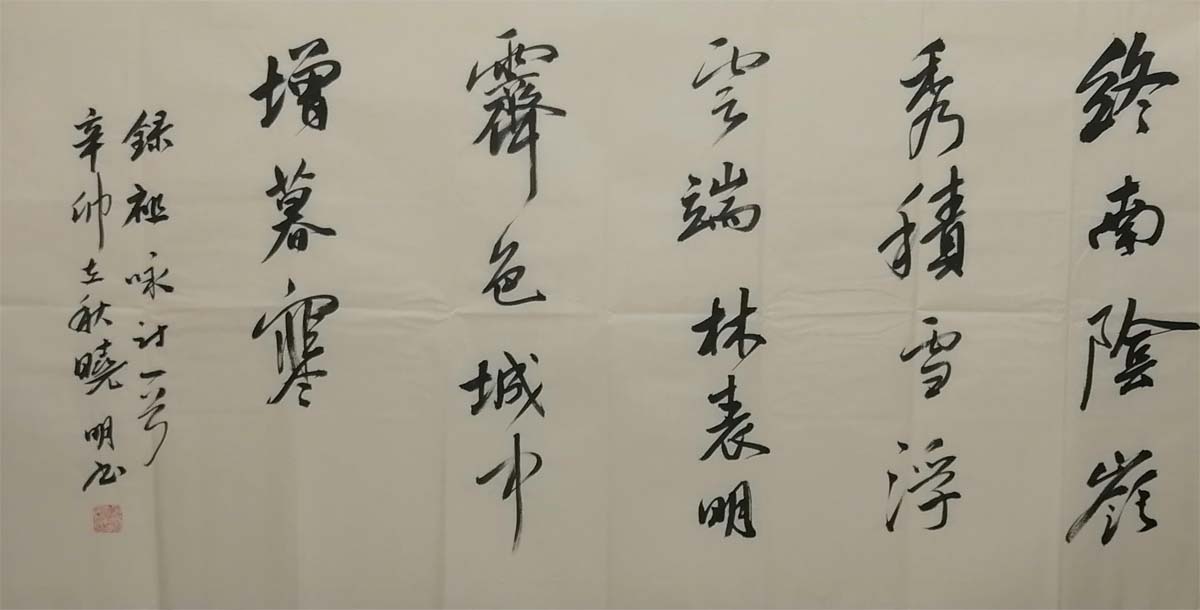 終南陰嶺
秀積雪浮
雲端林表明
霽色城中
增暮寒
録祖咏诗一首
辛卯立秋曉明书